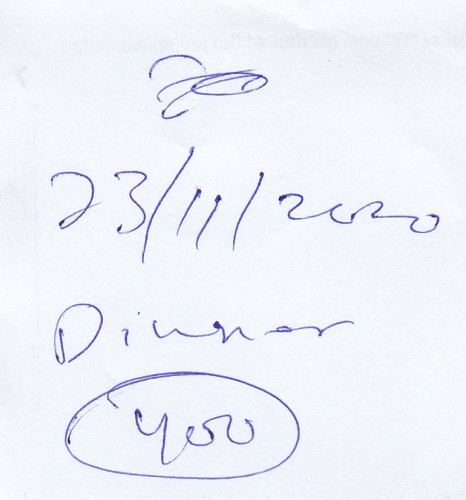 23/11/2020
Dinner
400